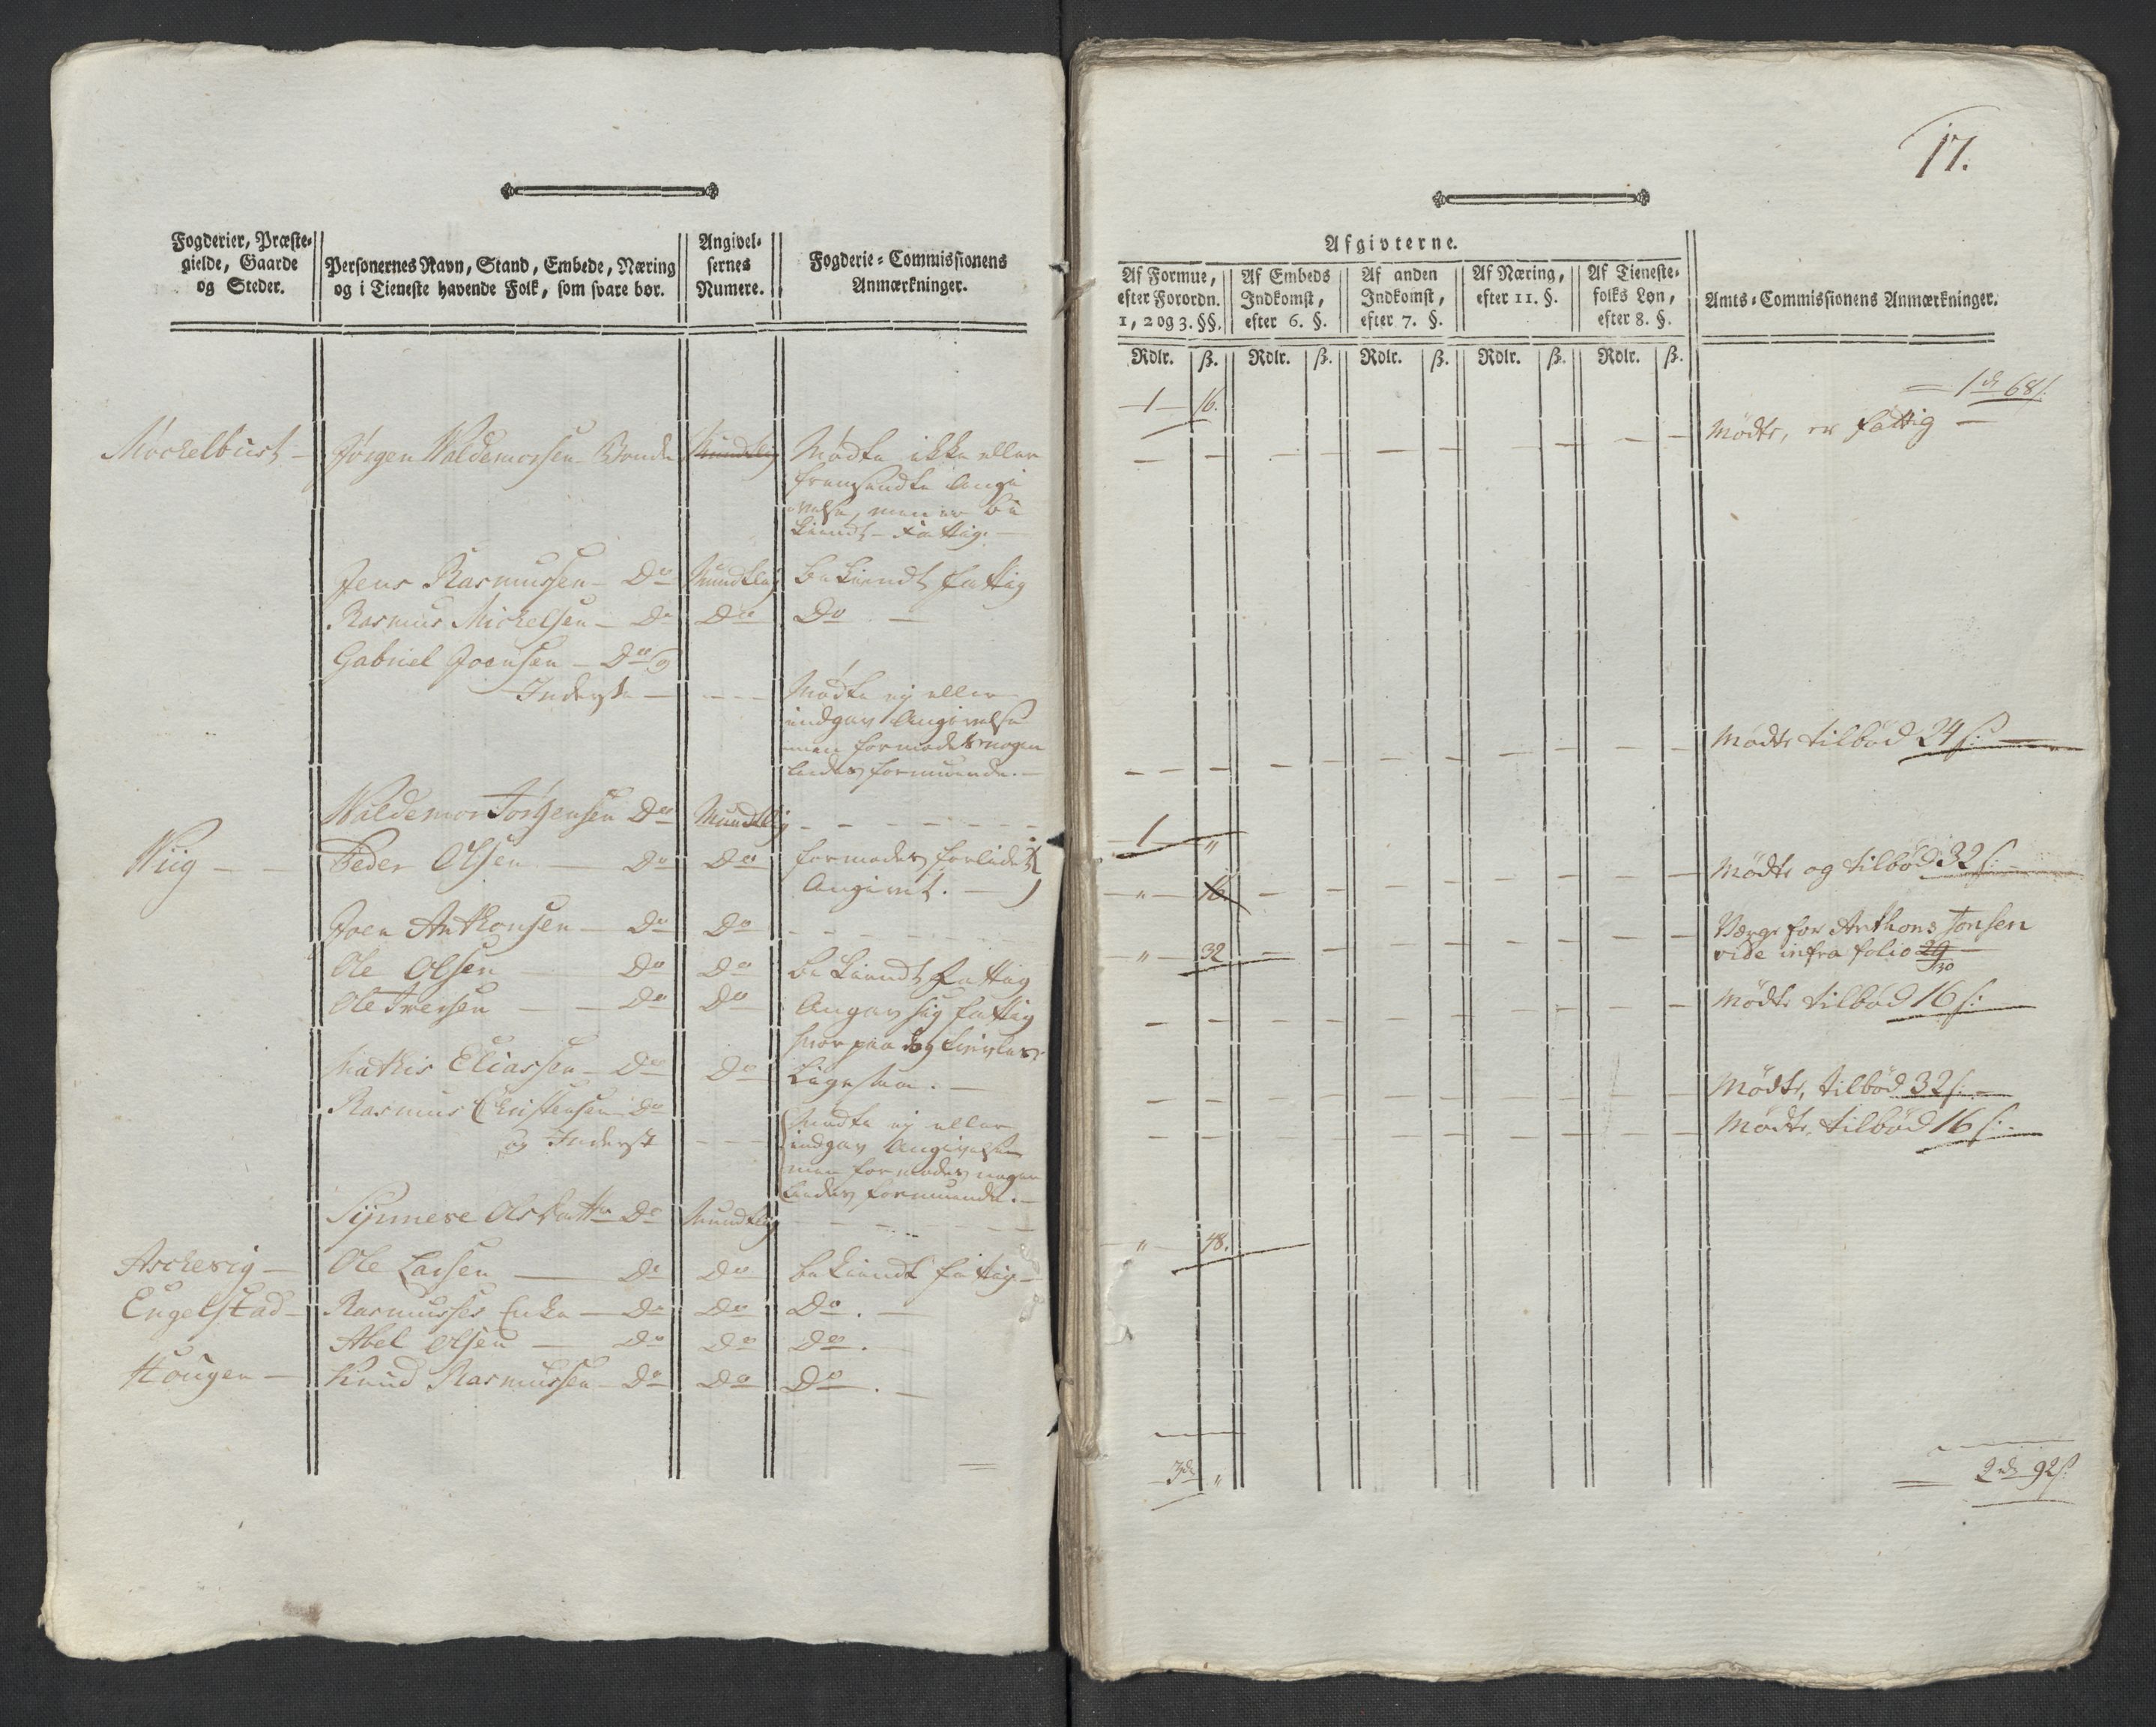 Fogderier, Præste-
gielde, Gaarde
og Steder.
Personernes Navn, Stand, Embede, Næring
og i Tieneste havende Folk, som svare bør.
Angivel-
sernes
Numere.
Fogderie-Commissionens
Anmærkninger.
Mørkelbust - Jørgen Waldemorssen Bonde Mundtlig Mødte ikke eller
fremsendte Angi
velse, men er be
kiendt Fattig. -
Jens Rasmussen - Do Mundtlig bekiendt fattig
Rasmus Michelsen - Do Do Do -
Gabriel Joensen - Do og
Inderste - - - - Mødte ej eller
indgav Angivelse
men formodes nogen
ledes formuende. -
Waldemor Jørgensen Do Mundtlig - - - - - -
Wiig - - Peder Olsen - Do Do formodes forlidet
Angivet. -
Joen Anthonsen - Do Do - - - - -
Ole Olsen Do Do bekiendt fattig
Ole Iversen - - Do Do Angav sig fattig
hvorpaa og
Mathis Eliassen - Do Do Ligesaa. -
Rasmus Christensen Do
og Inderst - - - Mødte ej eller
indgav Angivelse
men formodes nogen
ledes formuende. -
Synneve Olsdatter Do Mundtlig - - - - -
Aschevig - Ole Larsen - Do Do bekiendt fattig -
Engelstad - Rasmusses Enke - Do Do Do. -
Abel Olsen - Do Do Do.
Hougen - Knud Rasmussen - Do Do Do. -
17.
Afgivterne.
Af Formue,
efter Forordn.
1, 2 og 3. §§.
Af Embeds
Indkomst,
efter 6. §.
Af anden
Indkomst,
efter 7. §.
Af Næring,
efter 11. §.
Af Tieneste-
folks Løn,
efter 8. §.
Amts-Commissionens Anmærkninger.
Rdlr. ß. Rdlr. ß. Rdlr. ß. Rdlr. ß. Rdlr. ß.
1 - 16. = 1 d 68 s:
Mødte, er fattig -
Mødte tilbød 24 s: -
1 "
Mødte og tilbød 32 s: -
" - 16
Værge for Anthons Jonsen
" - 32 vide infra folio 29
30
Mødte tilbød 16 s:
Mødte, tilbød 32 s: -
Mødte, tilbød 16 s: -
" 48.
3 d " = 2 rd 92 s: